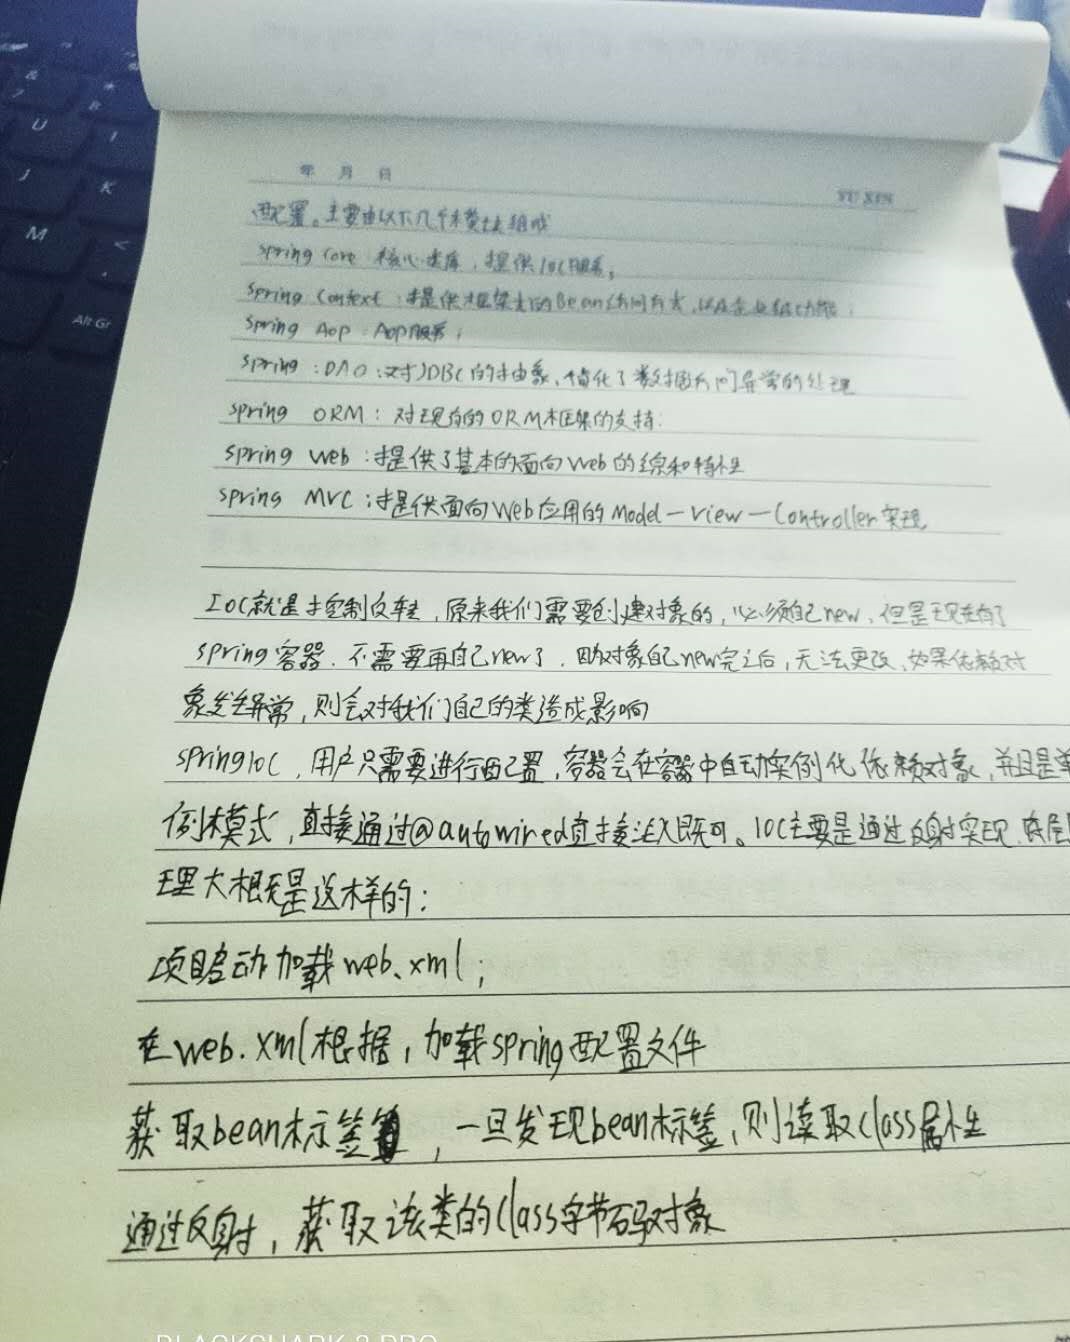 年 月 日
YU XIN
配置。主要由以下几个模块组成
spring core 核心类库，提供IOC服务；
spring context：提供框架式的Bean访问方式，以及企业级功能；
spring Aop：Aop服务；
spring：DAO：对JDBC的抽象，简化了数据访问异常的处理
spring ORM：对现有的ORM框架的支持；
spring web：提供了基本的面向Web的综和特性
spring MVC：提供面向Web应用的Model－View－Controller实现
IOC就是控制反转，原来我们需要创建对象的，必须自己new，但是现在有了
spring容器，不需要再自己new了，因为对象自己new完之后，无法更改，如果依赖对
象发生异常，则会对我们自己的类造成影响
springIoc，用户只需要进行配置，容器会在容器中自动实例化依赖对象，并且是单
例模式，直接通过@autowired直接注入既可。IOC主要是通过反射实现，底层
理大概是这样的：
项目启动加载web.xml；
在web.xml根据，加载spring配置文件
获取bean标签，一旦发现bean标签，则读取class属性
通过反射，获取该类的Class字节码对象